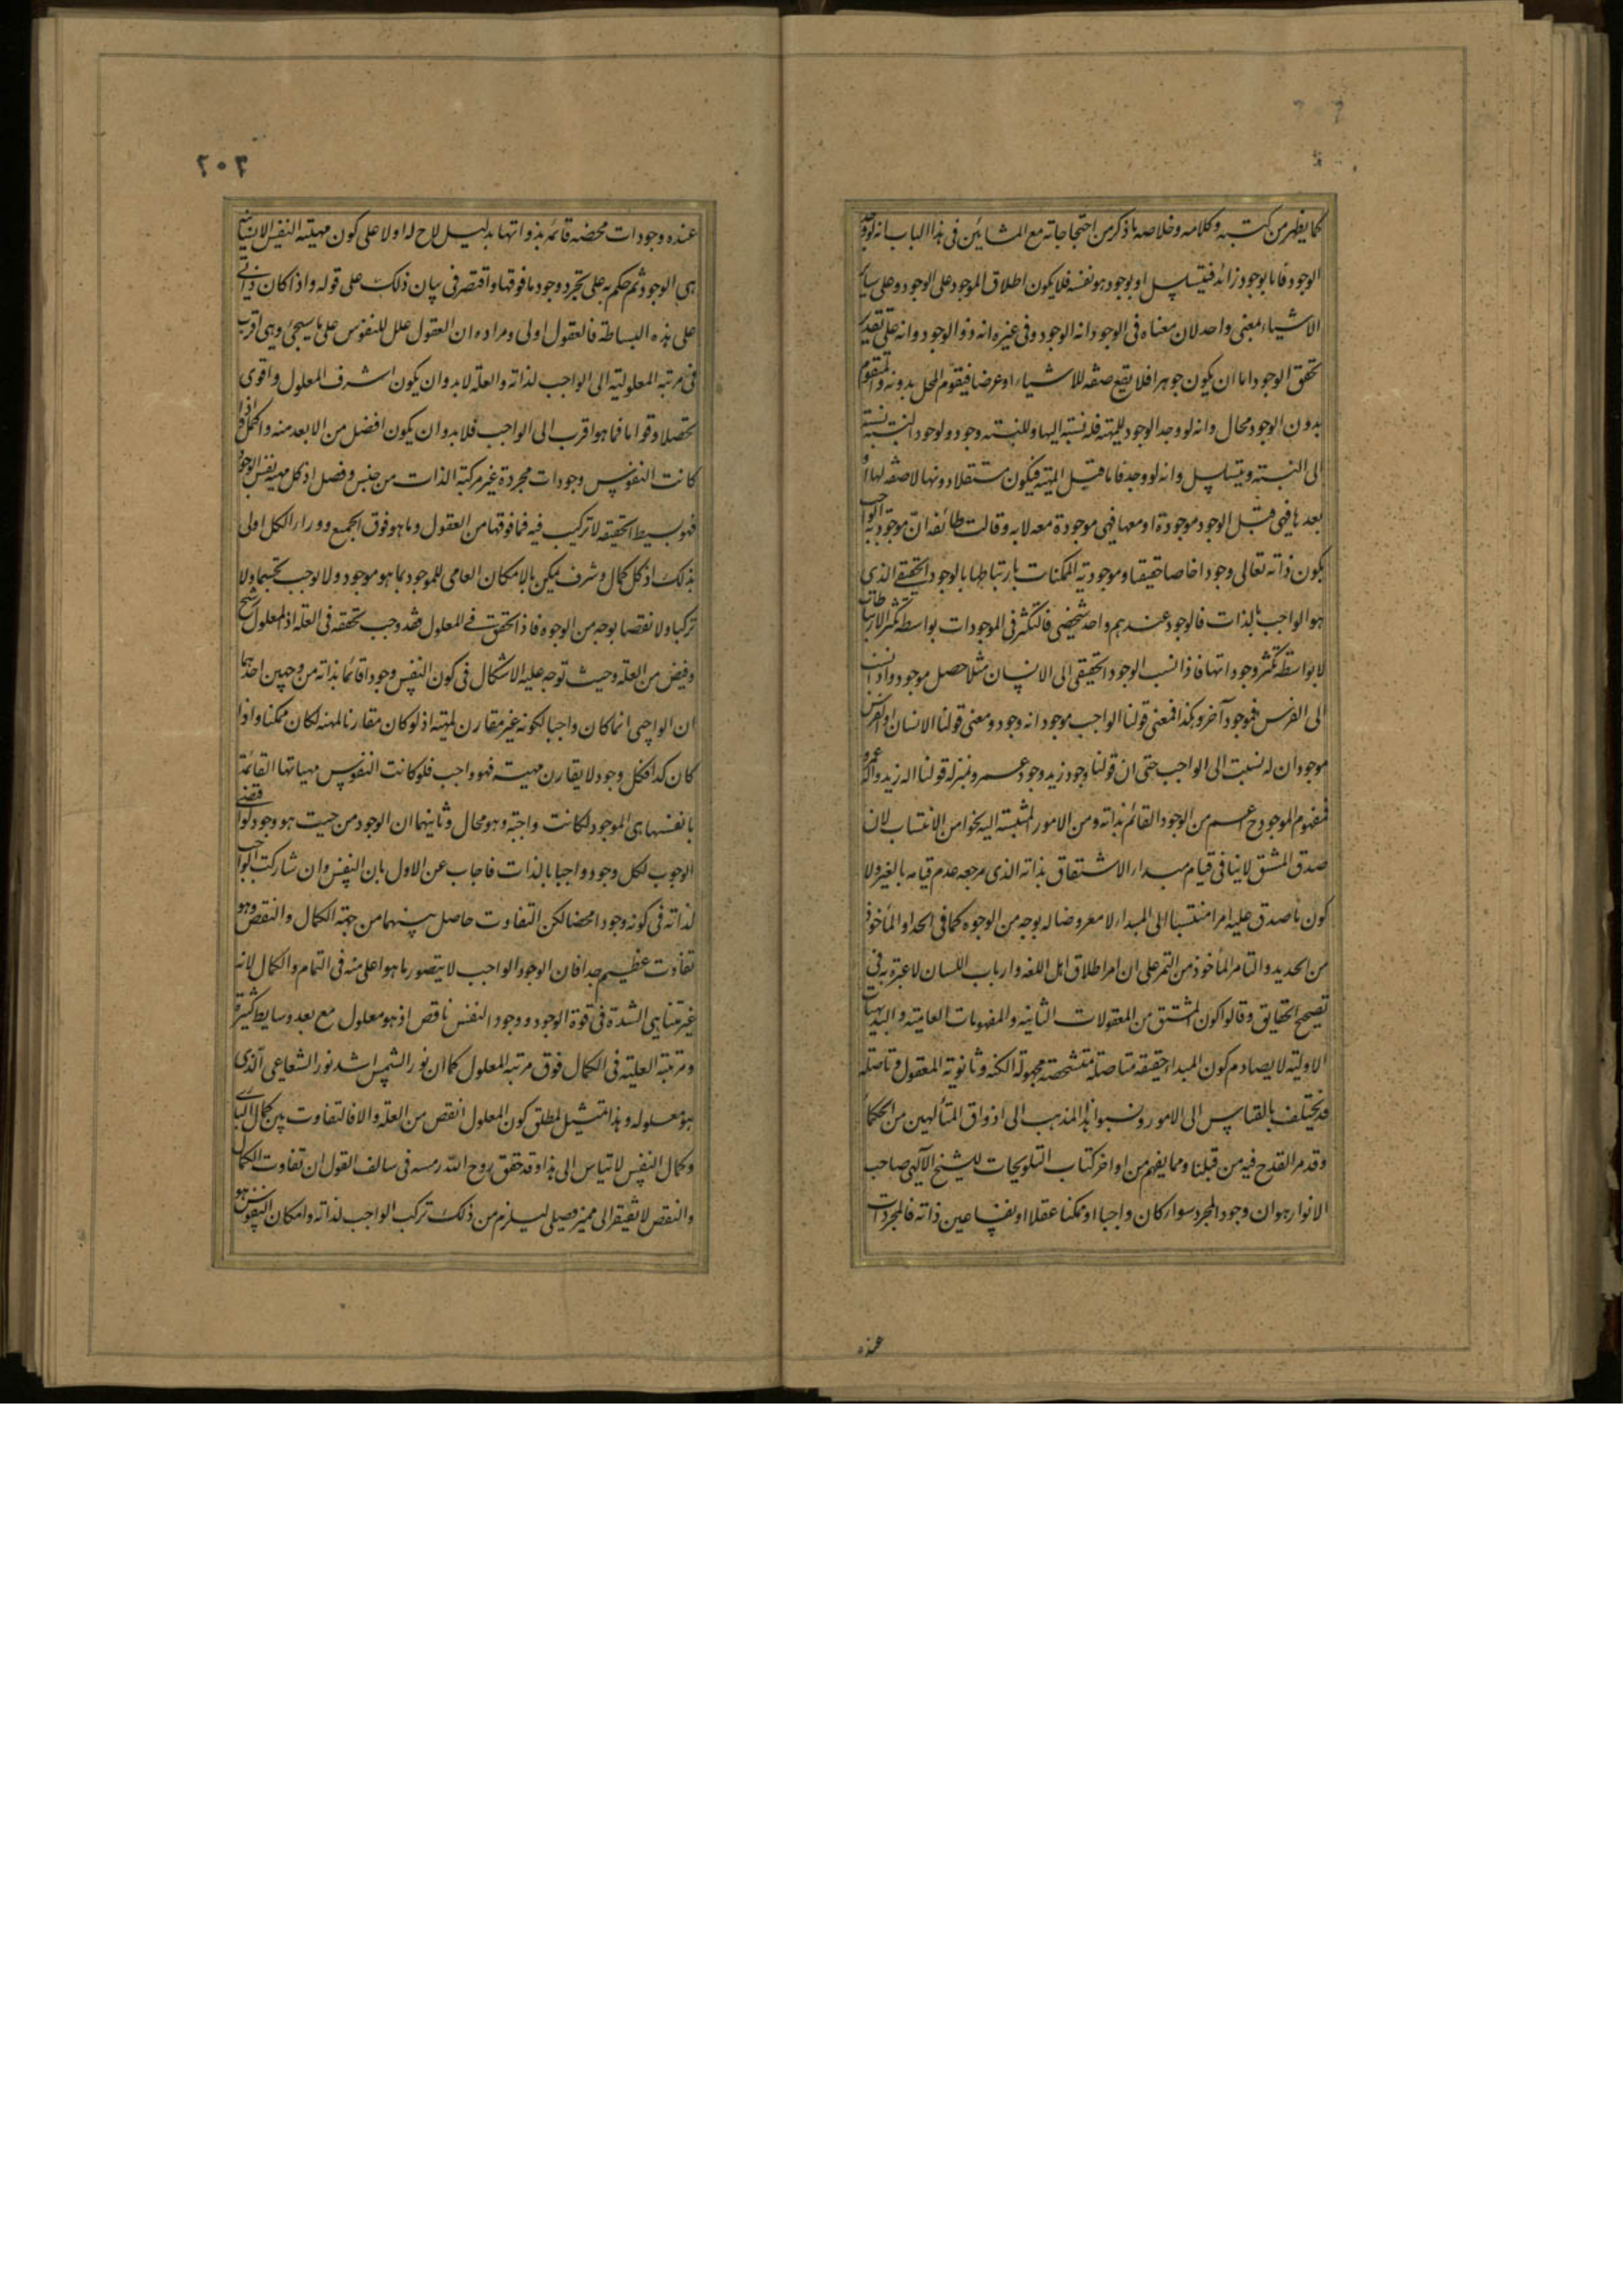 كما يظهر من كتبه وكلامه وخلاصه ما ذكر من احتجاجاته مع المشائين فى هذا الباب انه لو وجد
الوجود فاما بوجود زائد فيتسلسل او بوجود هو نفسه فلا يكون اطلاق الموجود على الوجود وعلى سائر
الاشياء بمعنى واحد لان معناه فى الوجود انه الوجود وفى غيره انه ذو الوجود وانه على تقدير
تحقق الوجود اما ان يكون جوهرا فلا يقع صفه للاشياء او عرضا فيقوم المحل بدونه والتقوم
بدون الوجود محال وانه لو وجد الوجود للمهية فله نسبة اليها وللنسبة وجود ولوجود النسبة نسبة
الى النسبة ويتسلسل وانه لو وجد فاما قبل المهية فيكون مستقلا دونها لا صفه لها او
بعدها فهى قبل الوجود موجودة او معها فهى موجودة معه لا به وقالت طائفه ان موجودية الواجب
بكون ذاته تعالى وجودا خاصا حقيقيا وموجودية الممكنات بارتباطها بالوجود الحقيقى الذى
هو الواجب بالذات فالوجود عندهم واحد شخصى فالتكثر فى الموجودات بواسطه تكثر الارتباطات
لا بواسطه تكثر وجوداتها فاذا نسب الوجود الحقيقى الى الانسان مثلا حصل موجود واذا نسب
الى الفرس فموجود آخر وهكذا فمعنى قولنا الواجب موجود انه وجود ومعنى قولنا الانسان او الفرس
موجود ان له نسبت الى الواجب حتى ان قولنا وجود زيد وجود عمرو بمنزلة قولنا اله زيد واله عمرو
فمفهوم الموجود ح اعم من الوجود القائم بذاته ومن الامور المنتسبة اليه نحوا من الانتساب لان
صدق المشتق لا ينافى قيام مبدء الاشتقاق بذاته الذى مرجعه عدم قيامه بالغير ولا
كون ما صدق عليه امرا منتسبا الى المبداء لا معروضا له بوجه من الوجوه كما فى الحداد المأخوذ
من الحديد والتامر المأخوذ من التمر على ان امر اطلاق اهل اللغه وارباب اللسان لا عبرة به فى
تصحيح الحقايق وقالوا كون المشتق من المعقولات الثانيه والمفهومات العامية والبديهيات
الاولية لا يصادم كون المبداء حقيقه متاصلة متشخصة مجهولة الكنه وثانوية المعقول وتاصله
قد يختلف بالقياس الى الامور ونسبوا هذا المذهب الى اذواق المتألهين من الحكما
وقد مر القدح فيه من قبلنا ومما يفهم من اواخر كتاب التلويحات للشيخ الآلهى صاحب
الانوار هو ان وجود المجرد سواء كان واجبا او ممكنا عقلا او نفسا عين ذاته فالمجردات
عنده
٢٠٢
عنده وجودات محضه قائمه بذواتها بدليل لاح له اولا على كون مهية النفس الانسانيه
هى الوجود ثم حكم به على تجرد وجود ما فوقها واقتصر فى بيان ذلك على قوله واذا كان ذاتى
على هذه البساطة فالعقول اولى ومراده ان العقول علل للنفوس على ما سيجئ وهى اقرب
فى مرتبه المعلولية الى الواجب لذاته والعلة لابد وان يكون اشرف المعلول واقوى
تحصلا وقواما فما هو اقرب الى الواجب فلا بد وان يكون افضل من الابعد منه واكمل فاذا
كانت النفوس وجودات مجردة غير مركبة الذات من جنس وفصل اذ كل مهية نفس الوجود
فهو بسيط الحقيقه لا تركيب فيه فما فوقها من العقول وما هو فوق الجميع ووراء الكل اولى
بذلك اذ كل كمال وشرف يمكن بالامكان العامى للموجود بما هو موجود ولا يوجب تجسما ولا
تركبا ولا نقصا بوجه من الوجوه فاذا تحقق فى المعلول فقد وجب تحققه فى العلة اذ المعلول رشح
وفيض من العلة وحيث توجه عليه الاشكال فى كون النفس وجودا قائما بذاته من وجهين احدهما
ان الواجبى انما كان واجبا لكونه غير مقارن لمهيته اذ لو كان مقارنا لمهية لكان ممكنا واذا
كان كذا فكل وجود لا يقارن مهيته فهو واجب فلو كانت النفوس مهياتها القائمة
بانفسها هى الموجود لكانت واجبة وهو محال وثانيهما ان الوجود من حيث هو وجود لو اقتضى
الوجوب لكل وجود واجبا بالذات فاجاب عن الاول بان النفس وان شاركت الواجب
لذاته فى كونه وجودا محضا لكن التفاوت حاصل بينهما من جهة الكمال والنقص وهو
تفاوت عظيم جدا فان الوجود الواجب لا يتصور ما هو اعلى منه فى التمام والكمال لانه
غير متناهى الشدة فى قوة الوجود ووجود النفس ناقص اذ هو معلول مع بعد وسايط كثيرة
ومرتبة العلية فى الكمال فوق مرتبه المعلول كما ان نور الشمس اشد نور الشعاعى الذى
هو معلوله وهذا تمثيل لمطلق كون المعلول انقص من العلة والا فالتفاوت بين كمال البارى
وكمال النفس لا تياس الى هذا وقد حقق روح الله رمسه فى سالف القول ان تفاوت الكمال
والنقص لا تفتقر الى مميز فصيلى ليلزم من ذلك تركب الواجب لذاته وامكان النفوس هو